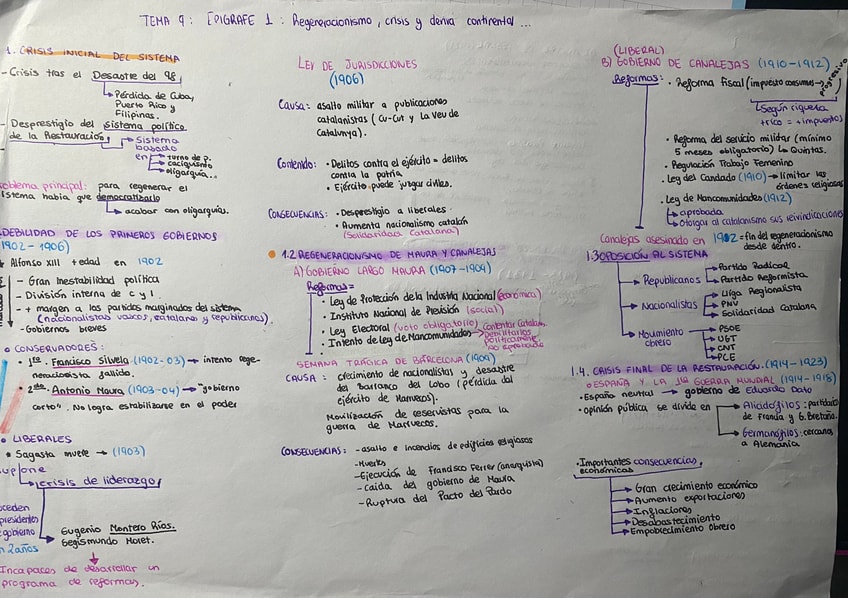 TEMA 9: [EPIGRAFE 1: Regeneracionismo, crisis y deriva continental...
1. CRISIS INICIAL DEL SISTEMA
- Crisis tras el Desastre del 98,
Pérdida de Cuba,
Puerto Rico y
Filipinas.
- Desprestigio del sistema político
de la Restauración,
Sistema
basado
en
turno de p.
caciquismo
oligarquía...
oblema principal: para regenerar el
istema había que democratizarlo
acabar con oligarquías.
DEBILIDAD DE LOS PRIMEROS GOBIERNOS
1902-1906)
Alfonso XIII +edad en 1902
- Gran inestabilidad política
- División interna de C y L
- + margen a los partidos marginados del sistema
(nacionalistas vascos, catalanes y republicanos)
- Gobiernos breves
CONSERVADORES:
1ero. Francisco Silvela (1902-03) → intento rege-
neracionista fallido.
2do. Antonio Maura (1903-04) → "gobierno
corto". No logra estabilizarse en el poder
LIBERALES
Sagasta muere → (1903)
upone
crisis de liderazgo,
ceden
presidentes
gobierno
n 2 años
Eugenio Montero Ríos.
Segismundo Moret.
Incapaces de desarrollar un
programa de reformas.
LEY DE JURISDICCIONES
(1906)
Causa: asalto militar a publicaciones
catalanistas (Cu-Cut y La Veu de
Catalunya).
Contenido: • Delitos contra el ejército = delitos
contra la patria
• Ejército puede juzgar civiles.
CONSECUENCIAS: • Desprestigio a liberales
• Aumenta nacionalismo catalán
(Solidaridad Catalana)
1.2 REGENERACIONISMO DE MAURA Y CANALEJAS
A) GOBIERNO LARGO MAURA (1907-1909)
Reformas=
• Ley de Protección de la Industria Nacional (económica)
• Instituto Nacional de Previsión (social)
• Ley Electoral (voto obligatorio)
• Intento de ley de Mancomunidades
Contentar Cataluña.
Debilitarlos
políticamente
No aprobada
SEMANA TRÁGICA DE BARCELONA (1909)
CAUSA: crecimiento de nacionalistas y desastre
del Barranco del Lobo (pérdida del
ejército de Marruecos).
Movilización de reservistas para la
guerra de Marruecos.
CONSECUENCIAS: - asalto e incendios de edificios religiosos
- Muertes
- Ejecución de Francisco Ferrer (anarquista)
- Caída del gobierno de Maura
- Ruptura del Pacto del Pardo
(LIBERAL)
B) GOBIERNO DE CANALEJAS (1910-1912)
Reformas: • Reforma fiscal (impuesto consumos→
progresivo
(Según riqueza
+rico = +impuesto)
• Reforma del servicio militar (mínimo
5 meses obligatorio) Quintas.
• Regulación Trabajo Femenino
• Ley del Candado (1910) → limitar las
órdenes religiosas
• Ley de Mancomunidades (1912)
aprobada
Otorgar al catalanismo sus reivindicaciones
Canalejas asesinado en 1912 = fin del regeneracionismo
desde dentro.
1.3 OPOSICIÓN AL SISTEMA
Republicanos
Partido Radical
Partido Reformista
Nacionalistas
Lliga Regionalista
PNV
Solidaridad Catalana
Movimiento
obrero
PSOE
UGT
CNT
PCE
1.4. CRISIS FINAL DE LA RESTAURACIÓN. (1914-1923)
ESPAÑA Y LA 1ª GUERRA MUNDIAL (1914-1918)
• España neutral → gobierno de Eduardo Dato
• Opinión pública, se divide en
Aliadófilos: partidarios
de Francia y G. Bretaña.
Germanófilos: cercanos
a Alemania
• Importantes consecuencias,
económicas
Gran crecimiento económico
Aumento exportaciones
Inflaciones
Desabastecimiento
Empobrecimiento Obrero